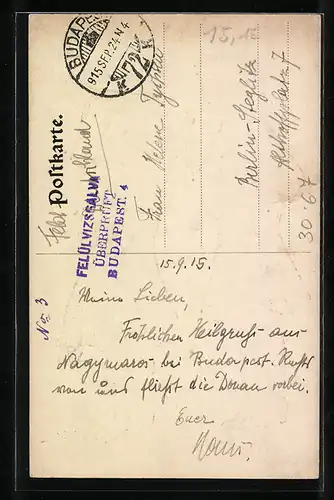 BUDAPEST
915 SEP. 24 N 4
72
15,15
Feld Postkarte.
FELÜLVIZSGÁLVA
ÜBERPRÜFT
BUDAPEST. 4
Frau Helene
Berlin-Steglitz
30.67
No. 3
15.9.15.
Meine Lieben,
Fröhlichen Heilgruß aus
Nagymaros bei Budapest. Rechts
von uns fließt die Donau vorbei.
Euer
Hans.